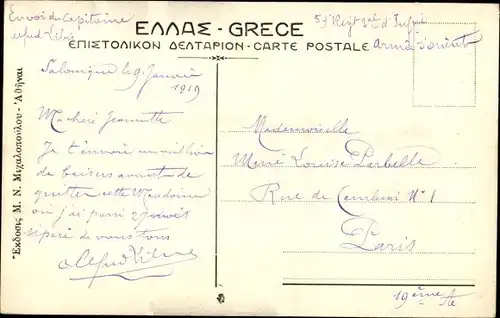 Envoi du Capitaine
Alfred
ΕΛΛΑΣ - GRECE
ΕΠΙΣΤΟΛΙΚΟΝ ΔΕΛΤΑΡΙΟΝ - CARTE POSTALE
Armée d'orient
Salonique le 9 Janvier
1919
Ma chère Jeannette
Je t'envoie un million
de baisers avant de
quitter cette Macédoine
où j'ai passé 2 années
séparé de vous tous
Alfred
Mademoiselle
Marie Louise
Rue de Cambrai N° 1
Paris
19ème
Ἔκδοσις Μ. Ν. Μιχαλοπούλου - Ἀθῆναι